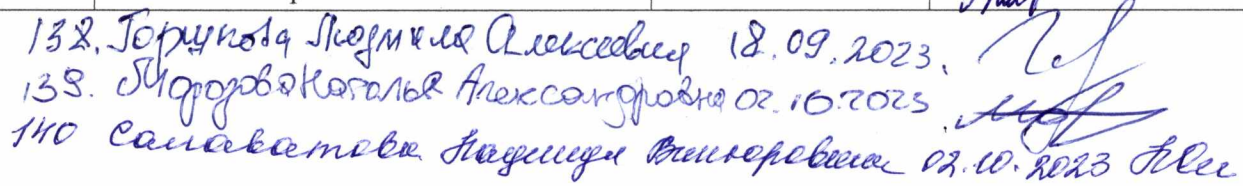 138. Горшкова Людмила Алексеевна 18.09.2023.
139. Морозова Наталья Александровна 02.10.2023
140 Салаватова Надежда Викторовна 02.10.2023